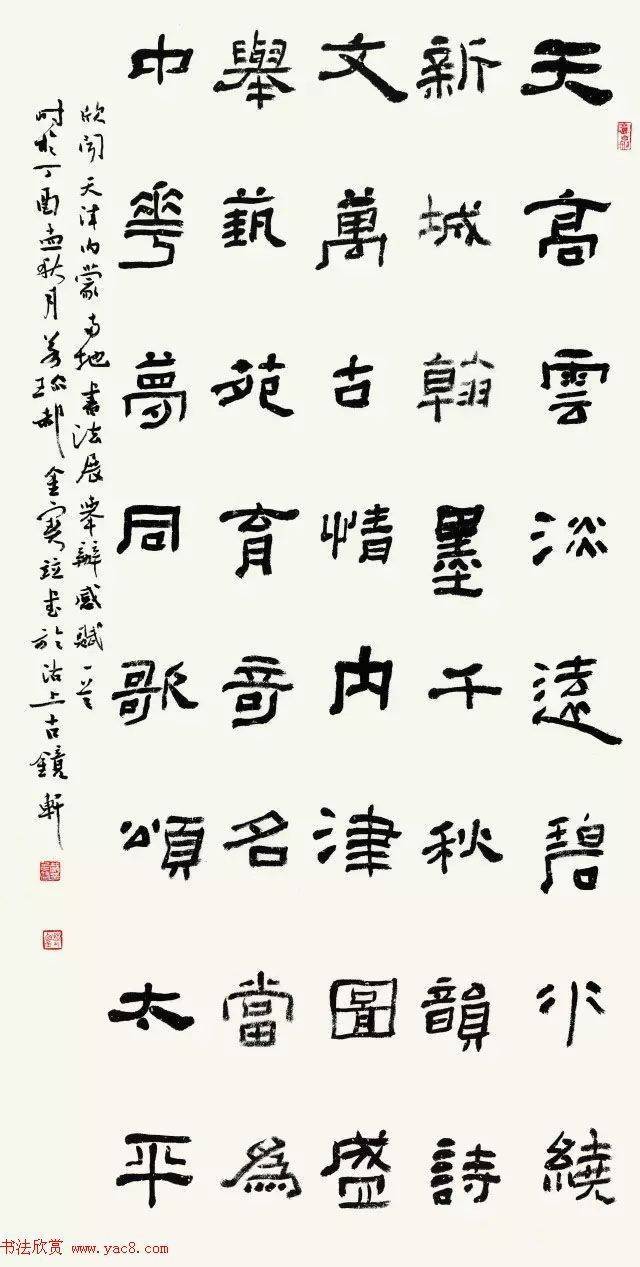 天高雲淡遠碧水繞
新城翰墨千秋韻詩
文萬古情内津圖盛
舉藝苑育奇名當為
中華夢同歌頌太平
欣聞天津内蒙兩地書法展舉辦感賦一首
时於丁酉孟秋月郝金寶並書於沽上古鏡軒
书法欣赏 www.yac8.com